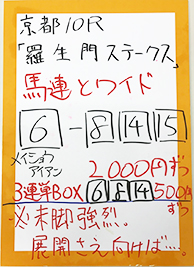 京都10R
「羅生門ステークス」
馬連とワイド
6-8 14 15
メイショウ
アイアン
2000円ずつ
3連単BOX 6 8 14 500円ずつ
※末脚強烈。
展開さえ向けば…